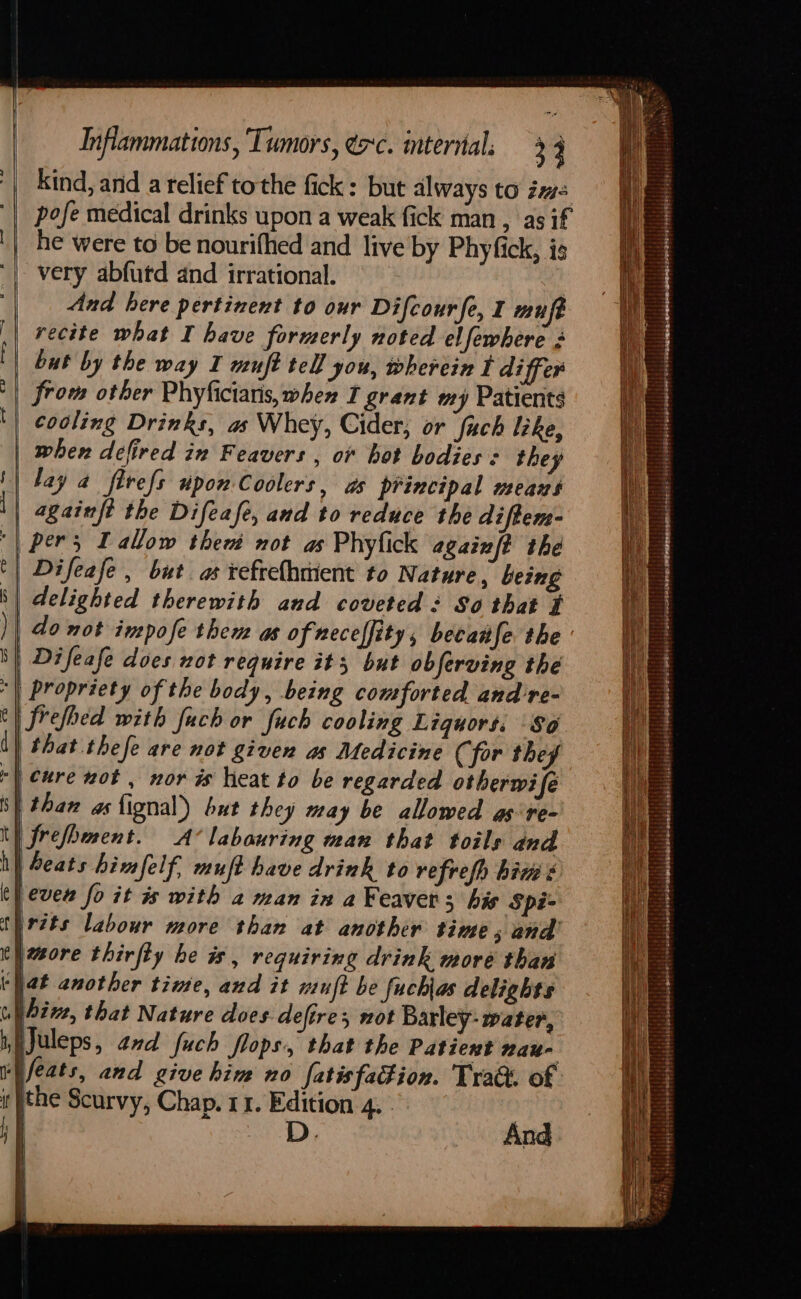 Inflammations, Tumors, &c. internal. 33
kind, and a relief to the ſick: but always to im-
poſe medical drinks upon a weak ſick man, as if
he were to be nouriſhed and live by Phyſick, is
very abſurd and irrational.
And here pertinent to our Diſcourſe, I muſt
recite what I have formerly noted elſewhere :
but by the way I muſt tell you, wherein I differ
from other Phyſicians, when I grant my Patients
cooling Drinks, as Whey, Cider, or ſuch like,
when deſired in Feavers, or hot bodies: they
lay a ſtreſs upon Coolers, as principal means
againſt the Diſeaſe, and to reduce the diſtem-
per; I allow them not as Phyſick againſt the
Diſeaſe, but as refreſhment to Nature, being
delighted therewith and coveted: So that I
do not impoſe them as of neceſſity, becauſe the
Diſeaſe does not require it; but obſerving the
propriety of the body, being comforted and re-
freſhed with ſuch or ſuch cooling Liquors. So
that theſe are not given as Medicine (for they
cure not, nor is heat to be regarded otherwiſe
than as ſignal) but they may be allowed as re-
freſhment. A labouring man that toils and
heats himſelf, muſt have drink to refreſh him:
even ſo it is with a man in a Feaver; his Spi-
rits labour more than at another time, and
more thirſty he is, requiring drink more than
at another time, and it muſt be ſuch as delights
him, that Nature does deſire; not Barley-water,
Juleps, and ſuch ſlops, that the Patient nau-
ſeats, and give him no ſatisfaction. Tract. of
the Scurvy, Chap. 11. Edition 4.
D And